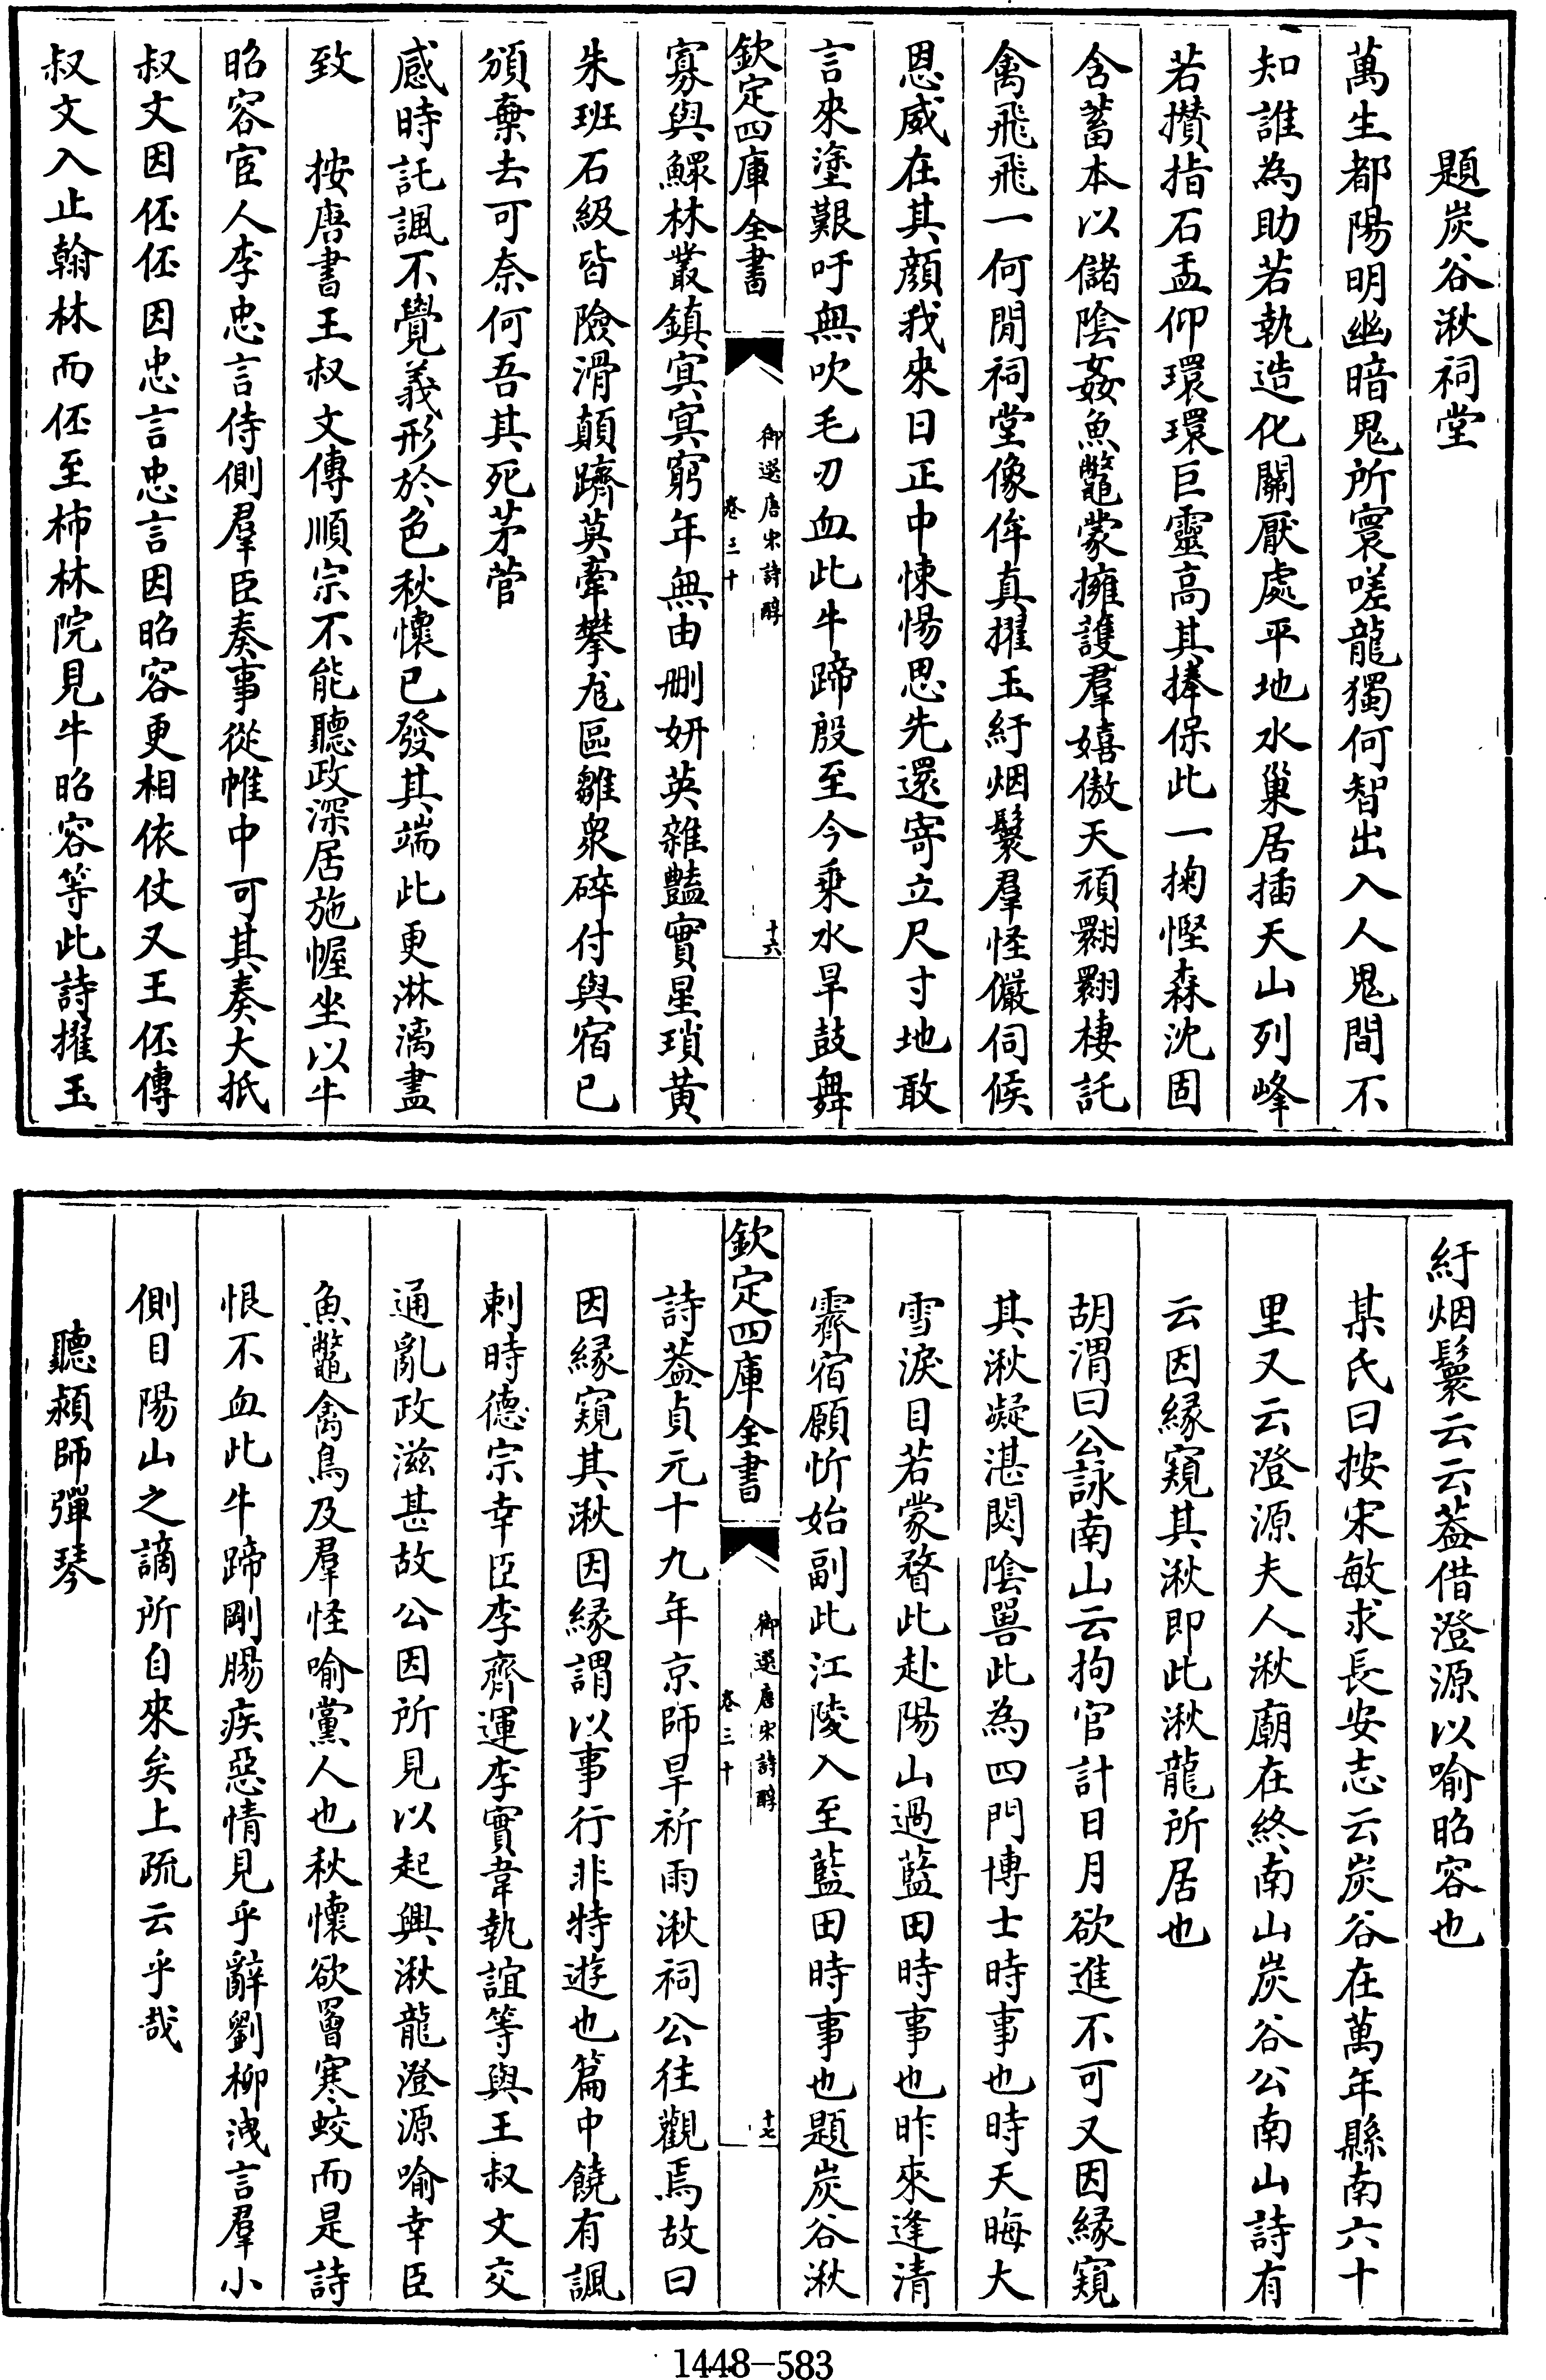 題炭谷湫祠堂
萬生都陽明幽暗鬼所寰嗟龍獨何智出入人鬼間不
知誰為助若執造化關厭處平地水巢居插天山列峰
若攢指石盂仰環環巨靈高其捧保此一掬慳森沈固
含蓄本以儲陰姦魚鼈蒙擁護羣嬉傲天頑翾翾棲託
禽飛飛一何閒祠堂像侔真擢玉紆烟鬟羣怪儼伺候
恩威在其顏我來日正中悚惕思先還寄立尺寸地敢
言來塗艱吁無吹毛刃血此牛蹄殷至今乗水旱鼓舞
欽定四庫全書
御選唐宋詩醇
卷三十
十六
寡與鰥林叢鎮㝠㝠窮年無由刪妍英雜豔實星瑣黄
朱班石級皆險滑顛躋莫牽攀尨區雛衆碎付與宿已
頒棄去可奈何吾其死茅菅
感時託諷不覺義形於色秋懷已發其端此更淋漓盡
致　按唐書王叔文傳順宗不能聽政深居施幄坐以牛
昭容宦人李忠言侍側羣臣奏事從帷中可其奏大抵
叔文因伾伾因忠言忠言因昭容更相依仗又王伾傳
叔文入止翰林而伾至柿林院見牛昭容等此詩擢玉
紆烟鬟云云葢借澄源以喻昭容也
某氏曰按宋敏求長安志云炭谷在萬年縣南六十
里又云澄源夫人湫廟在終南山炭谷公南山詩有
云因縁窺其湫即此湫龍所居也
胡渭曰公詠南山云拘官計日月欲進不可又因縁窺
其湫凝湛閟陰嘼此為四門博士時事也時天晦大
雪淚目若蒙瞀此赴陽山過藍田時事也昨來逢清
霽宿願忻始副此江陵入至藍田時事也題炭谷湫
欽定四庫全書
御選唐宋詩醇
卷三十
十七
詩葢貞元十九年京師旱祈雨湫祠公往觀焉故曰
因縁窺其湫因縁謂以事行非特遊也篇中饒有諷
刺時德宗幸臣李齊運李實韋執誼等與王叔文交
通亂政滋甚故公因所見以起興湫龍澄源喻幸臣
魚鼈禽鳥及羣怪喻黨人也秋懷欲罾寒蛟而是詩
恨不血此牛蹄剛腸疾惡情見乎辭劉柳洩言羣小
側目陽山之謫所自來矣上疏云乎哉
聽潁師彈琴
1448-583